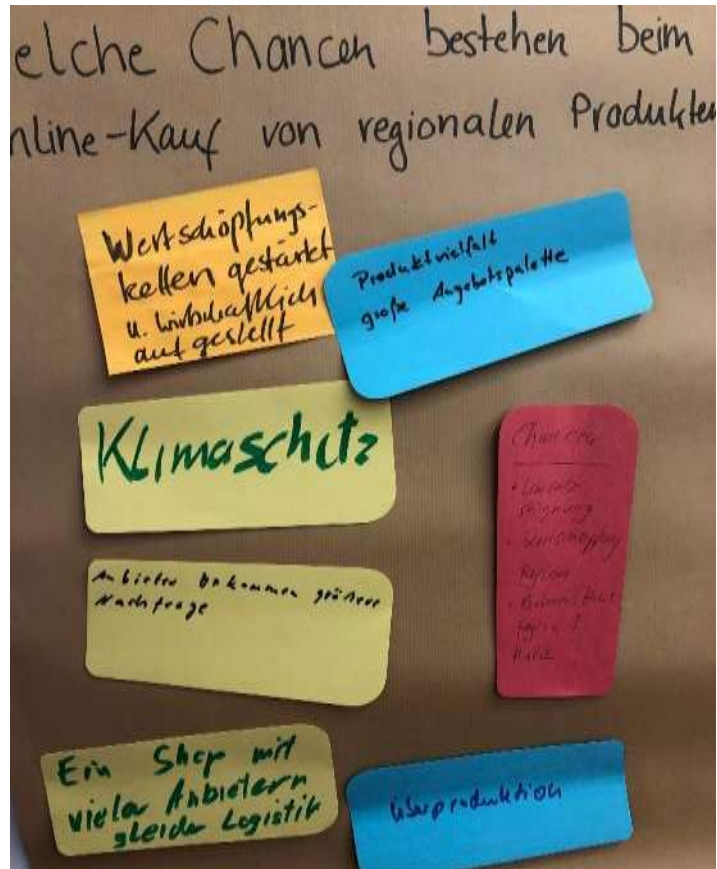 elche Chancen bestehen beim
nline-Kauf von regionalen Produkten
Wertschöpfungs-
ketten gestärkt
u. wirtschaftlich
aufgestellt
Produktvielfalt
große Angebotspalette
Klimaschutz
Anbieter bekommen größere
Nachfrage
Chancen
Wertschöpfung
Region
Ein Shop mit
vielen Anbietern
gleicher Logistik
Überproduktion